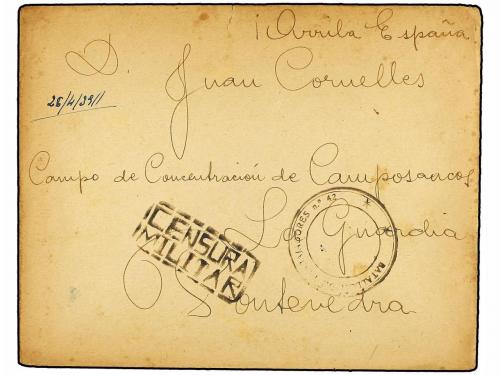 ¡Arriba España
D. Juan Cornelles
26/4/39//
Campo de Concentración de Camposancos
La Guardia
Pontevedra
CENSURA
MILITAR
BATALLÓN DE TRABAJADORES n.º 42